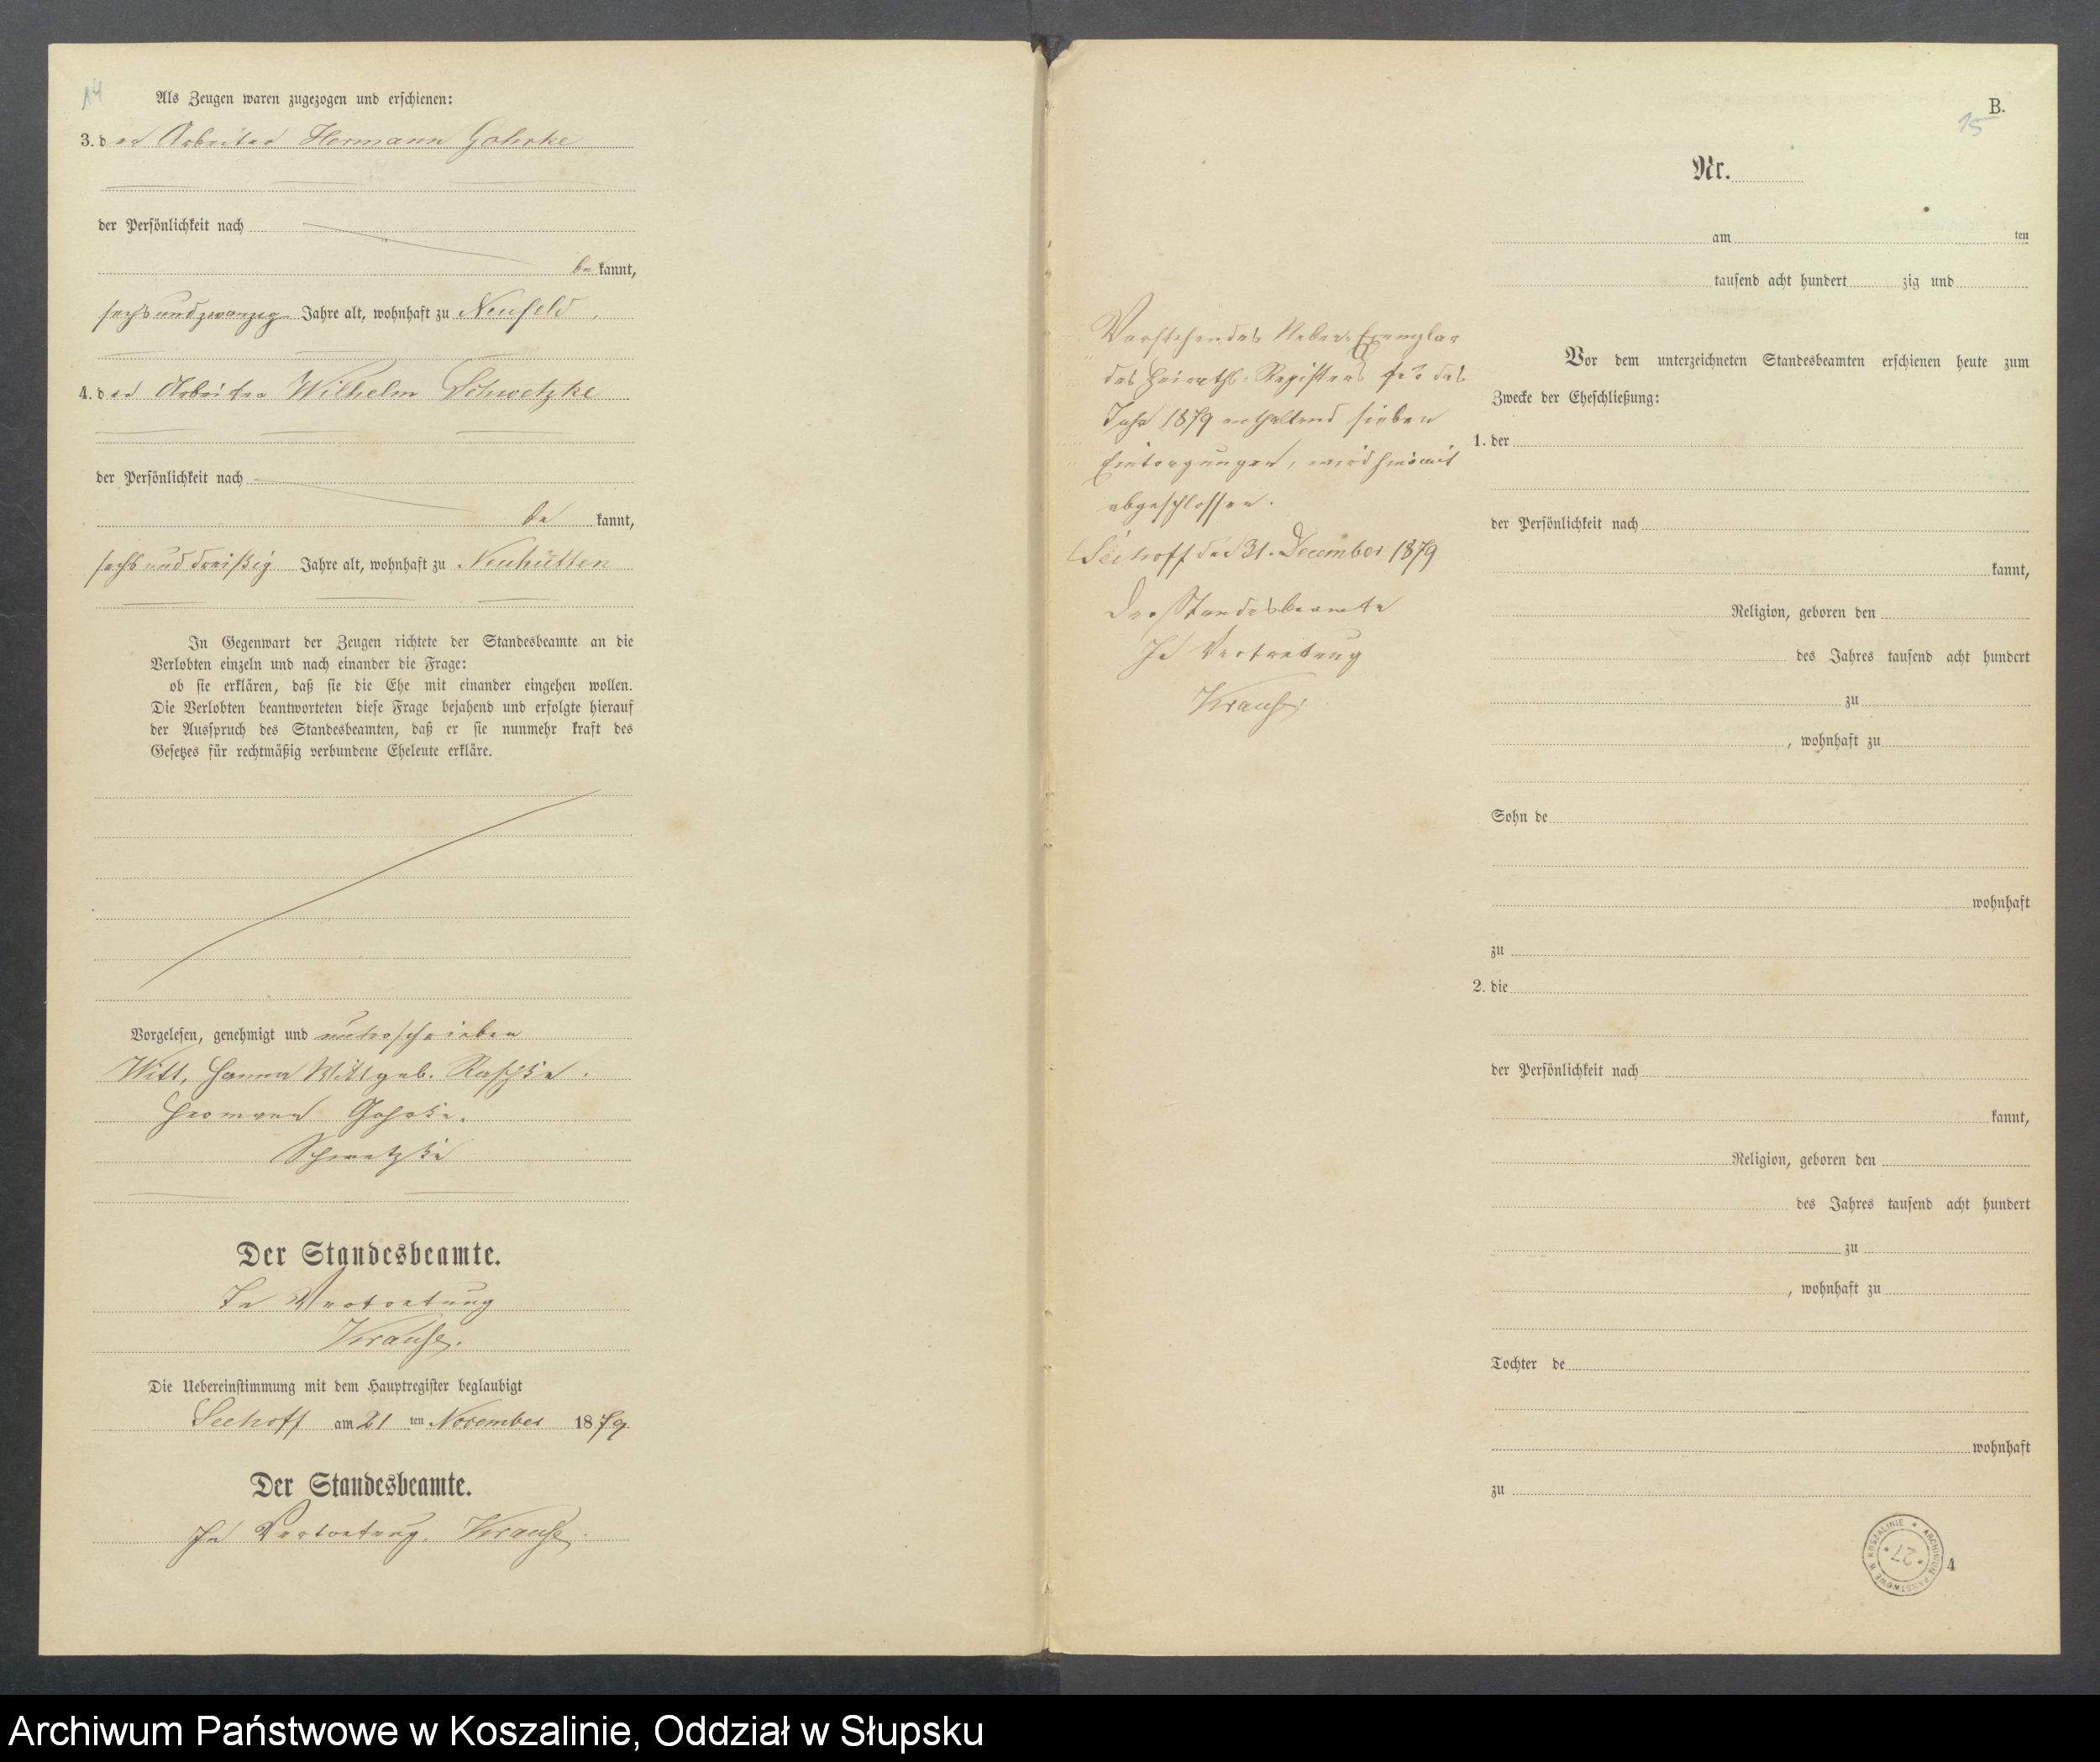 14
Als Zeugen waren zugezogen und erschienen:
3. der Arbeiter Hermann Gohrke
der Persönlichkeit nach
bekannt,
sechsundzwanzig Jahre alt, wohnhaft zu Neufeld,
4. der Arbeiter Wilhelm Schwetzke
der Persönlichkeit nach
bekannt,
sechsunddreißig Jahre alt, wohnhaft zu Neuhütten
In Gegenwart der Zeugen richtete der Standesbeamte an die
Verlobten einzeln und nach einander die Frage:
ob sie erklären, daß sie die Ehe mit einander eingehen wollen.
Die Verlobten beantworteten diese Frage bejahend und erfolgte hierauf
der Ausspruch des Standesbeamten, daß er sie nunmehr kraft des
Gesetzes für rechtmäßig verbundene Eheleute erkläre.
Vorgelesen, genehmigt und unterschrieben
Witt, Hanna Witt geb. Raschke.
Hermann Gohrke.
Schwetzke
Der Standesbeamte.
In Vertretung
Krause.
Die Uebereinstimmung mit dem Hauptregister beglaubigt
Seehoff am 21 ten November 1879.
Der Standesbeamte.
In Vertretung. Krause.
Vorstehendes Neben-Exemplar
des Heiraths-Registers für das
Jahr 1879 enthaltend sieben
Eintragungen, wird hiermit
abgeschlossen.
Seehoff den 31. December 1879
Der Standesbeamte
In Vertretung
Krause.
B.
15
Nr.
am ten
tausend acht hundert zig und
Vor dem unterzeichneten Standesbeamten erschienen heute zum
Zwecke der Eheschließung:
1. der
der Persönlichkeit nach
kannt,
Religion, geboren den
des Jahres tausend acht hundert
zu
, wohnhaft zu
Sohn de
wohnhaft
zu
2. die
der Persönlichkeit nach
kannt,
Religion, geboren den
des Jahres tausend acht hundert
zu
, wohnhaft zu
Tochter de
wohnhaft
zu
ARCHIWUM PAŃSTWOWE W KOSZALINIE
* 27 *
4
Archiwum Państwowe w Koszalinie, Oddział w Słupsku